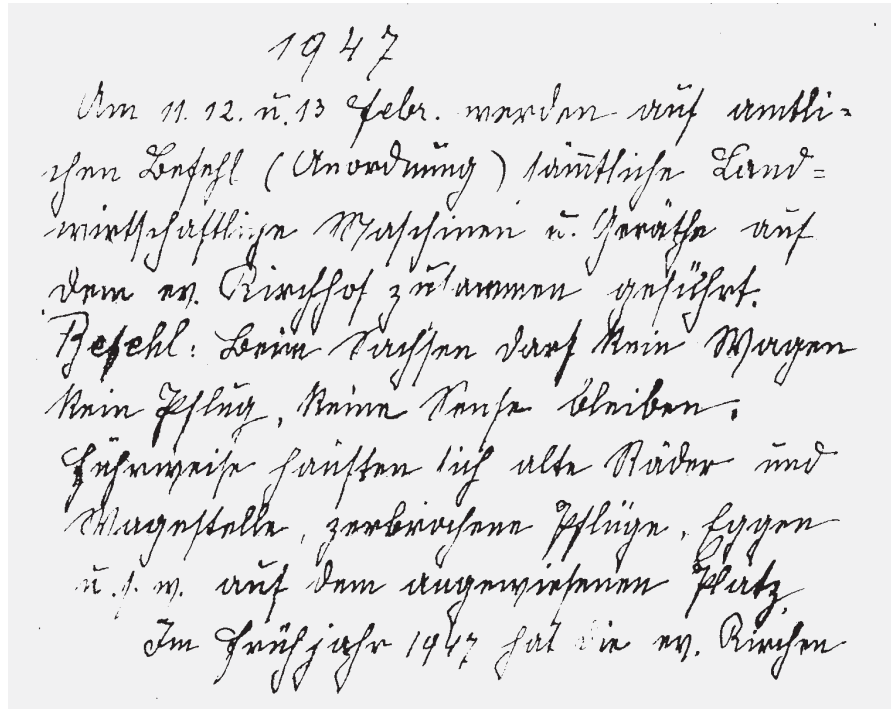 1947
Am 11. 12. u. 13 Febr. werden auf amtli-
chen Befehl (Anordnung) sämtliche Land=
wirtschaftliche Maschinen u. Geräthe auf
dem ev. Kirchhof zusammen geführt.
Befehl: Beim Sachsen darf kein Wagen
kein Pflug, keine Sense bleiben.
Fuhrweise häuften sich alte Räder und
Wagestelle, zerbrochene Pflüge, Eggen
u. s. w. auf dem angewiesenen Platz.
Im Frühjahr 1947 hat die ev. Kirchen